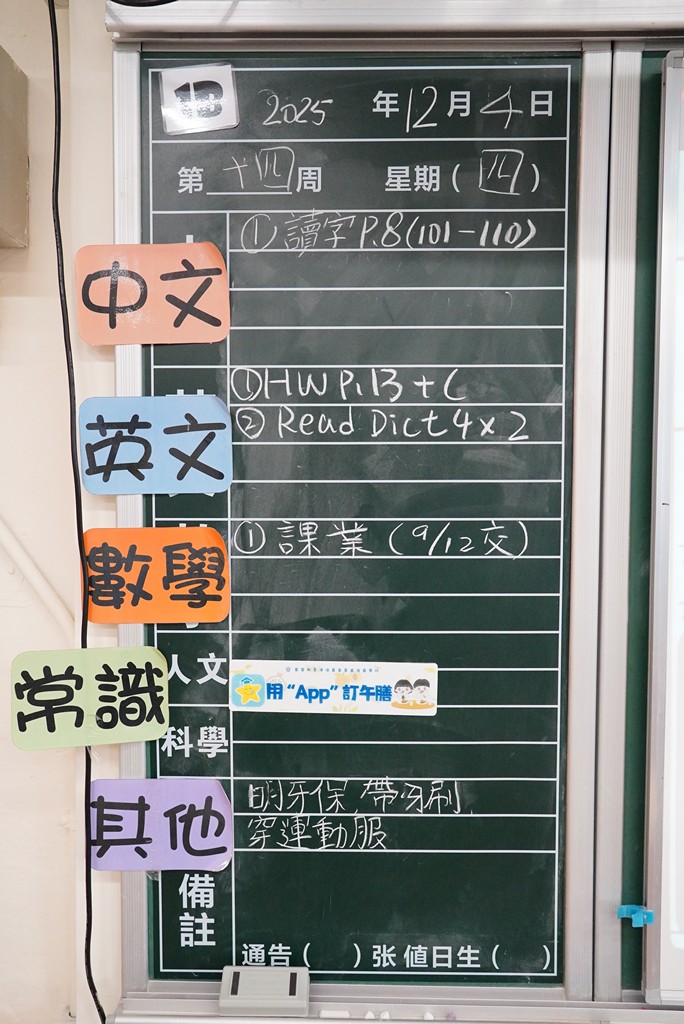 2025 年 12 月 4 日
第 十四 周 星期 ( 四 )
中文
① 讀字 P.8 (101-110)
英文
① HW P.13 + C
② Read Dict 4 x 2
數學
① 課業 (9/12 交)
人文
用 “App” 訂午膳
常識
科學
其他
明牙保 帶牙刷
穿運動服
備註
通告 ( ) 张 值日生 ( )